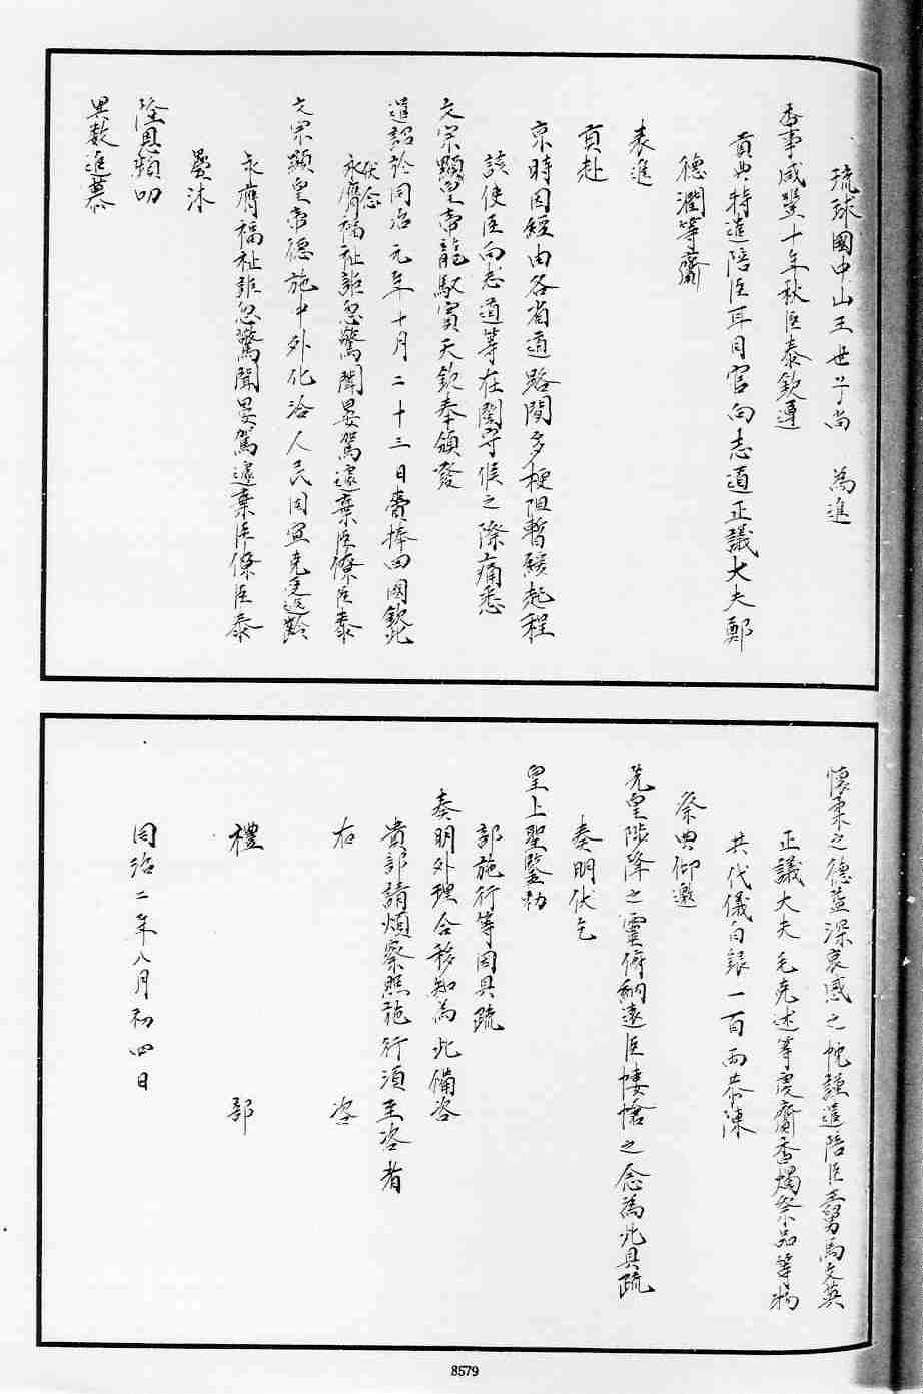 琉球國中山王世子尚　為進
香事咸豐十年秋臣泰欽遵
貢典特遣陪臣耳目官向志道正議大夫鄭
德潤等齎
表進
貢赴
京時因經由各省道路間多梗阻暫緩起程
該使臣向志道等在閩守候之際痛悉
文宗顯皇帝龍馭賓天欽奉頒發
遺詔於同治元年十月二十三日賫捧回國欽此
伏念
文宗顯皇帝德施中外化洽人民固宜克享遐齡
永膺福祉詎忽驚聞晏駕遽棄臣僚臣泰
永膺福祉詎忽驚聞晏駕遽棄臣僚臣泰
疊沐
隆恩頻叨
異數進慕
懷柔之德益深哀感之忱謹遣陪臣王舅馬文英
正議大夫毛克述等虔齎香燭祭品等物
共代儀白銀一百兩恭陳
祭典仰邀
先皇陟降之靈俯納遠臣悽愴之念為此具疏
奏明伏乞
皇上聖鑒勅
部施行等因具疏
奏明外理合移知為此備咨
貴部請煩察照施行須至咨者
右　咨
禮　部
同治二年八月初四日
8579